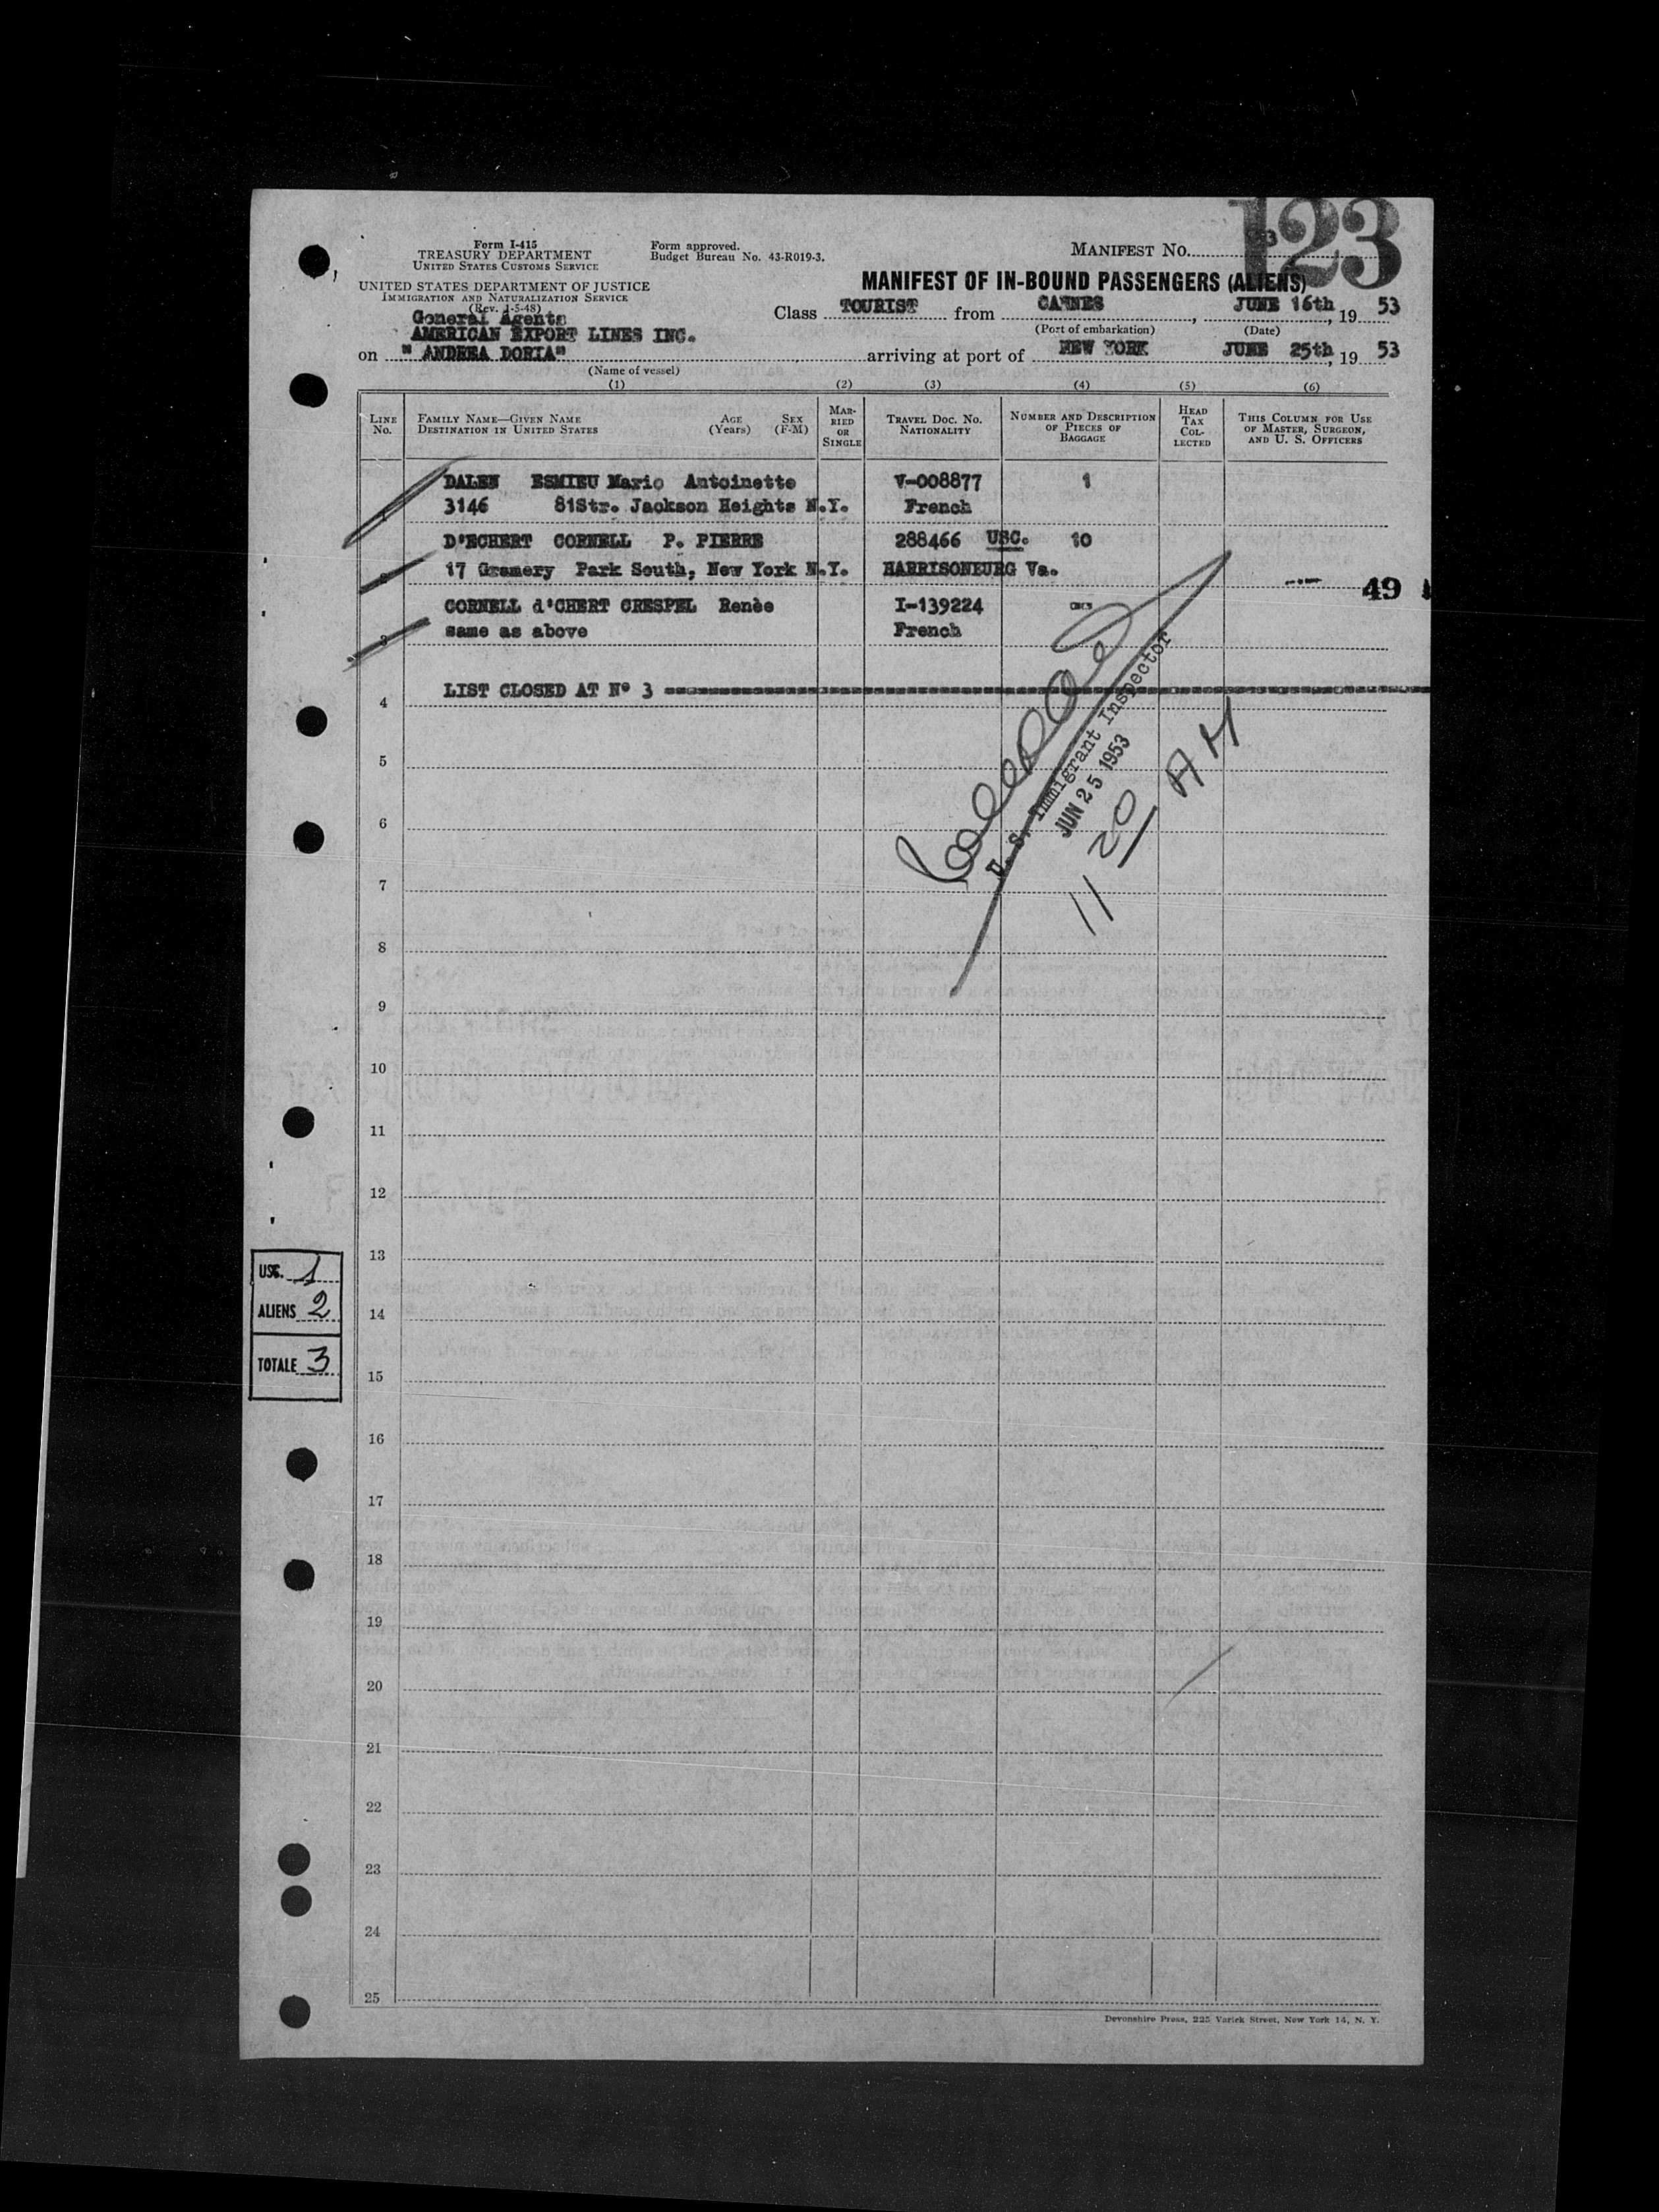 123
Form I-415
TREASURY DEPARTMENT
UNITED STATES CUSTOMS SERVICE
Form approved.
Budget Bureau No. 43-R019-3.
MANIFEST NO.
UNITED STATES DEPARTMENT OF JUSTICE
IMMIGRATION AND NATURALIZATION SERVICE
(Rev. 1-5-48)
MANIFEST OF IN-BOUND PASSENGERS (ALIENS)
General Agents
AMERICAN EXPORT LINES INC.
Class TOURIST from CANNES, JUNE 16th, 19 53
(Port of embarkation) (Date)
on "ANDREA DORIA" arriving at port of NEW YORK JUNE 25th, 19 53
(Name of vessel)
(1) (2) (3) (4) (5) (6)
LINE No.
FAMILY NAME—GIVEN NAME DESTINATION IN UNITED STATES
AGE (Years)
SEX (F-M)
MARRIED OR SINGLE
TRAVEL DOC. NO. NATIONALITY
NUMBER AND DESCRIPTION OF PIECES OF BAGGAGE
HEAD TAX COLLECTED
THIS COLUMN FOR USE OF MASTER, SURGEON, AND U. S. OFFICERS
DALEN ESMIEU Marie Antoinette V-008877 1
1 3146 81Str. Jackson Heights N.Y. French
D'ECHERT CORNELL P. PIERRE 288466 USC. 10
2 17 Gramery Park South, New York N.Y. HARRISONBURG Va. 49
CORNELL d'CHERT CRESPEL Renèe I-139224
3 same as above French
LIST CLOSED AT Nº 3
U. S. Immigrant Inspector
JUN 25 1953
11 20 AM
4
5
6
7
8
9
10
11
12
13
USC. 1
ALIENS 2
14
TOTALE 3
15
16
17
18
19
20
21
22
23
24
25
Devonshire Press, 225 Varick Street, New York 14, N. Y.